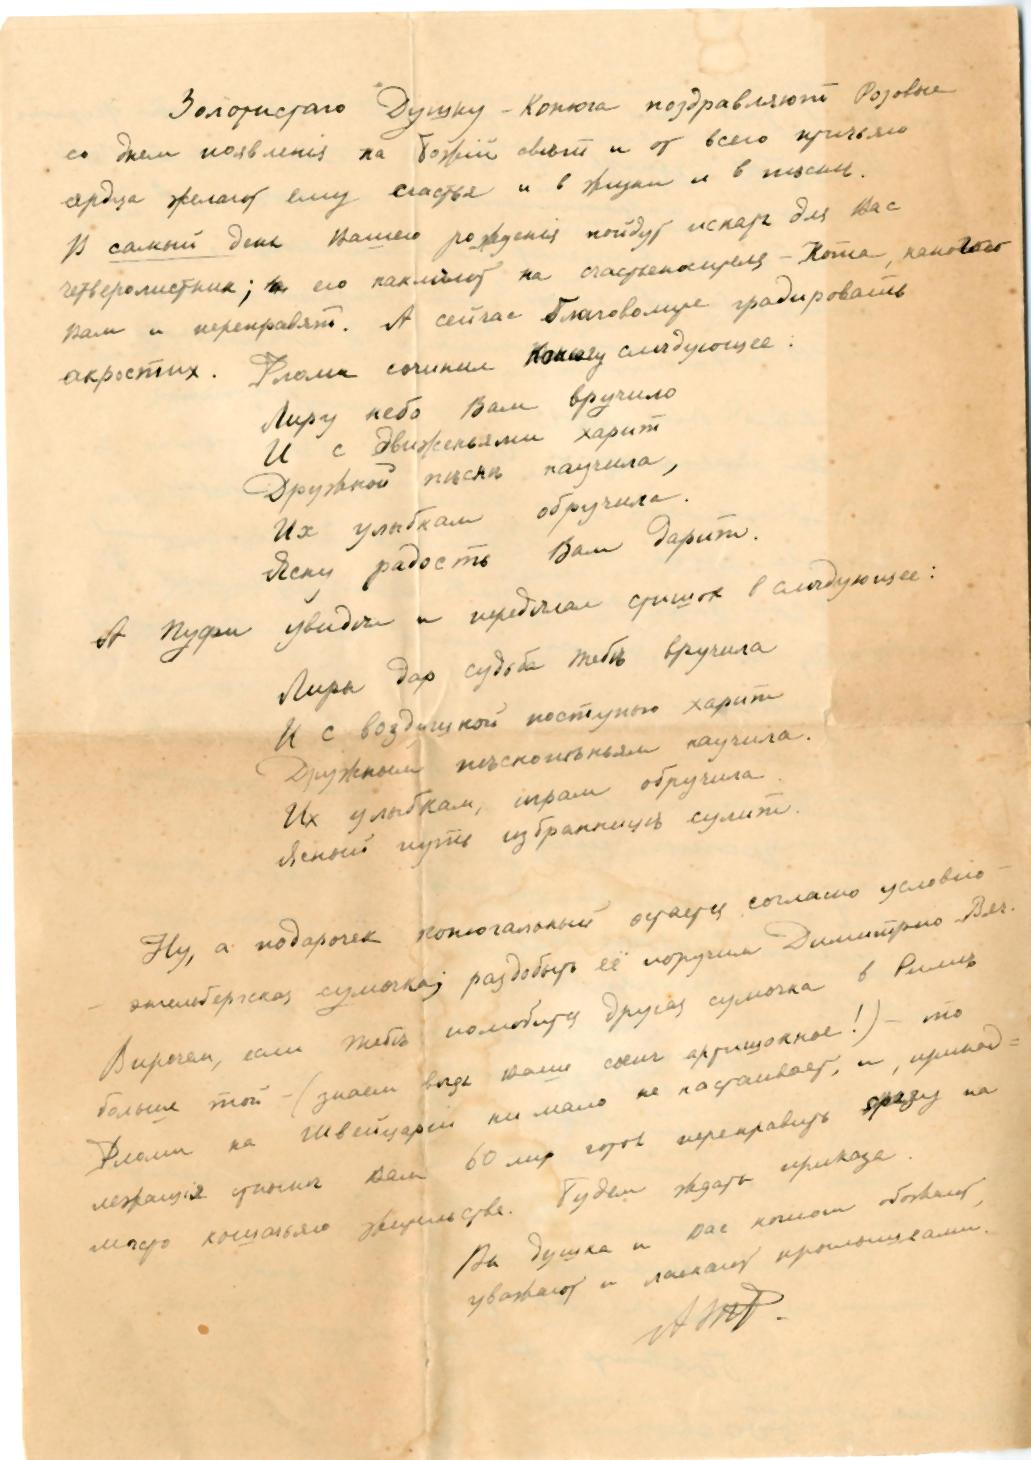 Золотистаго Душку – Конюга поздравляютъ Розовые
со днем появленiя на Божiй свѣт и от всего птичьяго
сердца желают ему счастья и в жизни и в пѣснѣ.
В самый день Вашего рожденiя пойдут искать для Вас
четверолистник; его наклеют на счастьеносителя – Кота,
Вам и переправят. А сейчас благоволите градировать
акростих. Фломи сочинил Конюгу слѣдующее:
Лиру небо Вам вручило
И с движеньями харит
Дружной пѣснѣ научила,
Их улыбкам обручила.
Ясну радость Вам дарит.
А Пуфи увидѣл и передѣлал стишок в слѣдующее:
Лиры дар судьба тебѣ вручила
И с воздушной поступью харит
Дружным пѣснопѣньям научила.
Их улыбкам, играм обручила.
Ясный путь избранницѣ сулит.
Ну, а подарочек конюгальный остается согласно условiю –
– энгельбергская сумочка; раздобыть её поручим Димитрiю Вяч.
Впрочем, если тебѣ полюбится другая сумочка в Римѣ
больше той – (знаем вѣдь ваше !) – то
Фломи на Швейцарiи ни мало не настаивает, и, принад=
лежащiя Вам 60 лир готов переправить сразу на
мѣсто кошачьяго жительства. Будем ждать приказа.
Вы душка и Вас обожают,
уважают и ласкают крылышками.